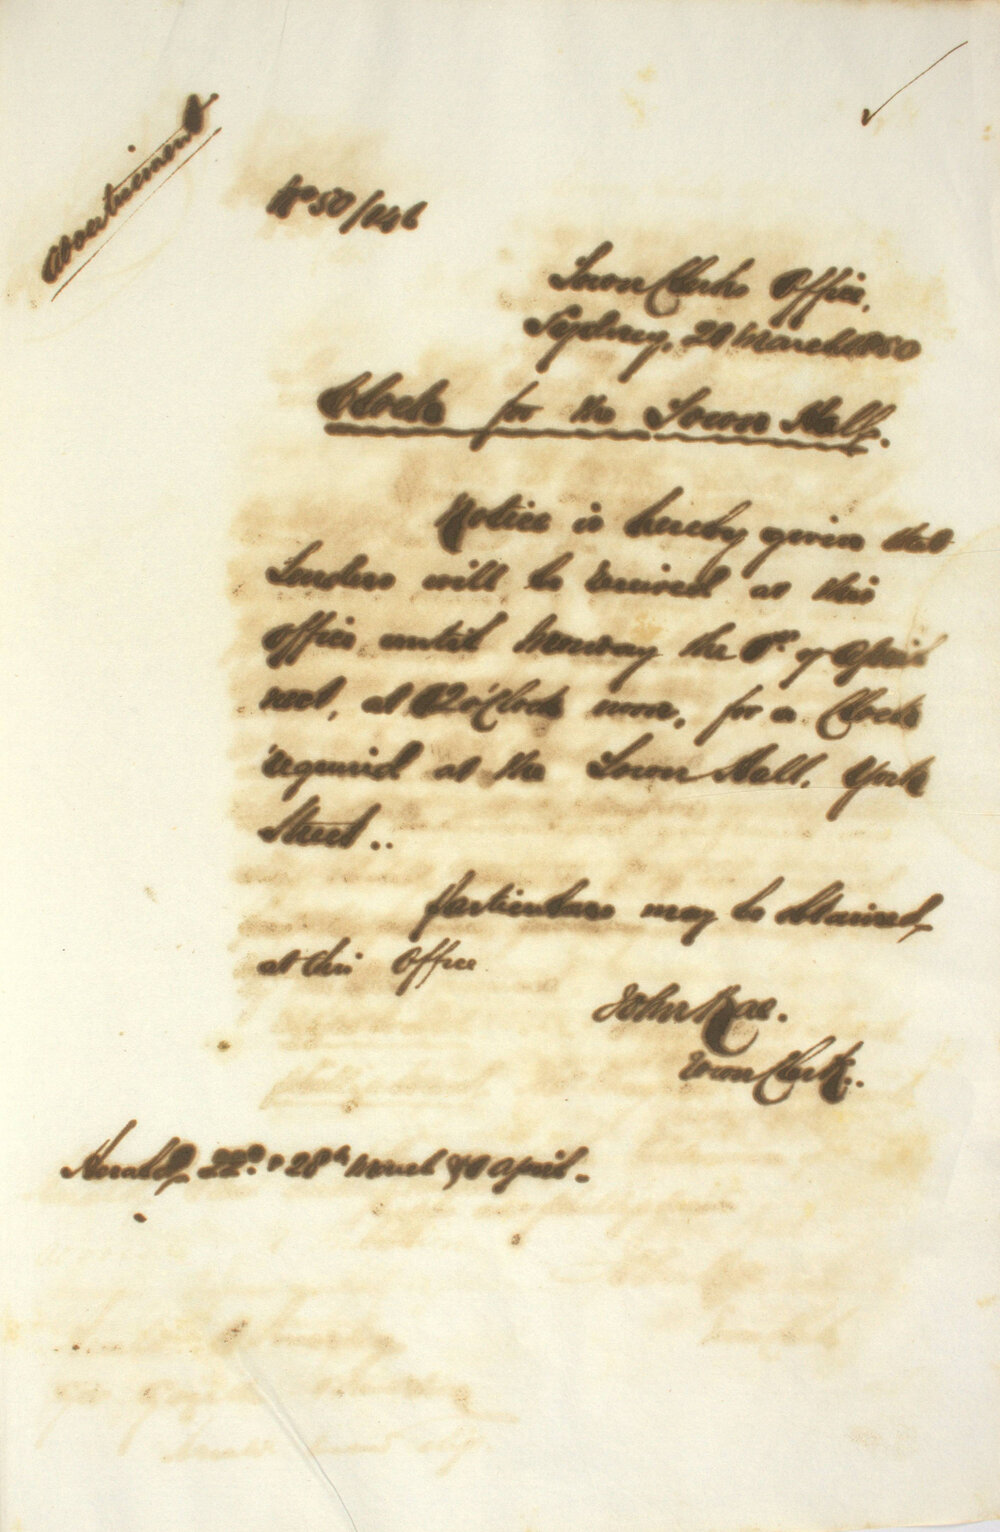 Advertisement
No 50/146
Town Clerks Office,
Sydney, 21 March 1850
Clock for the Town Hall.
Notice is hereby given that
Tenders will be received at this
Office, until Monday the 8th of April
next, at 12 o'Clock noon, for a Clock
required at the Town Hall, York
Street..
Particulars may be obtained
at this Office
John Rae.
Town Clerk..
Herald, 22nd & 28th March & April.